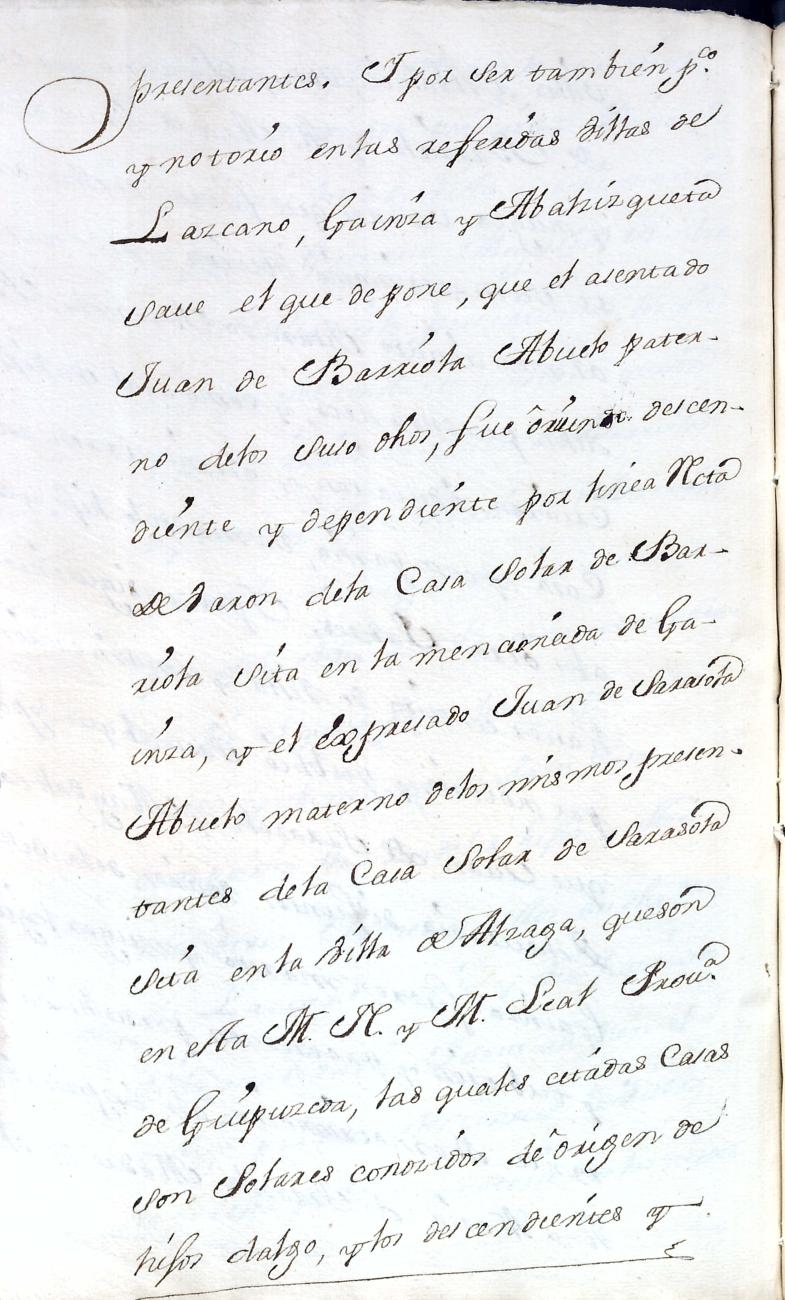 presentantes. Y por ser tambien p.co
y notorio en las referidas Villas de
Lazcano, Gainza y Abalzizqueta
save el que depone, que el asentado
Juan de Barriola Abuelo pater-
no delos suso dhos, fue oriundo descen-
diente y dependiente por linea Recta
de Varon dela Casa Solar de Bar-
riola sita en la mencionada de Ga-
inza, y el expresado Juan de Sarasola
Abuelo materno delos mismos presen-
tantes dela Casa Solar de Sarasola
sita en la Villa de Alzaga, queson
en esta M. N. y M. Leal Prov.a
de Guipuzcoa, las quales citadas Casas
son Solares conozidos de origen de
hijos dalgo, y los descendientes y